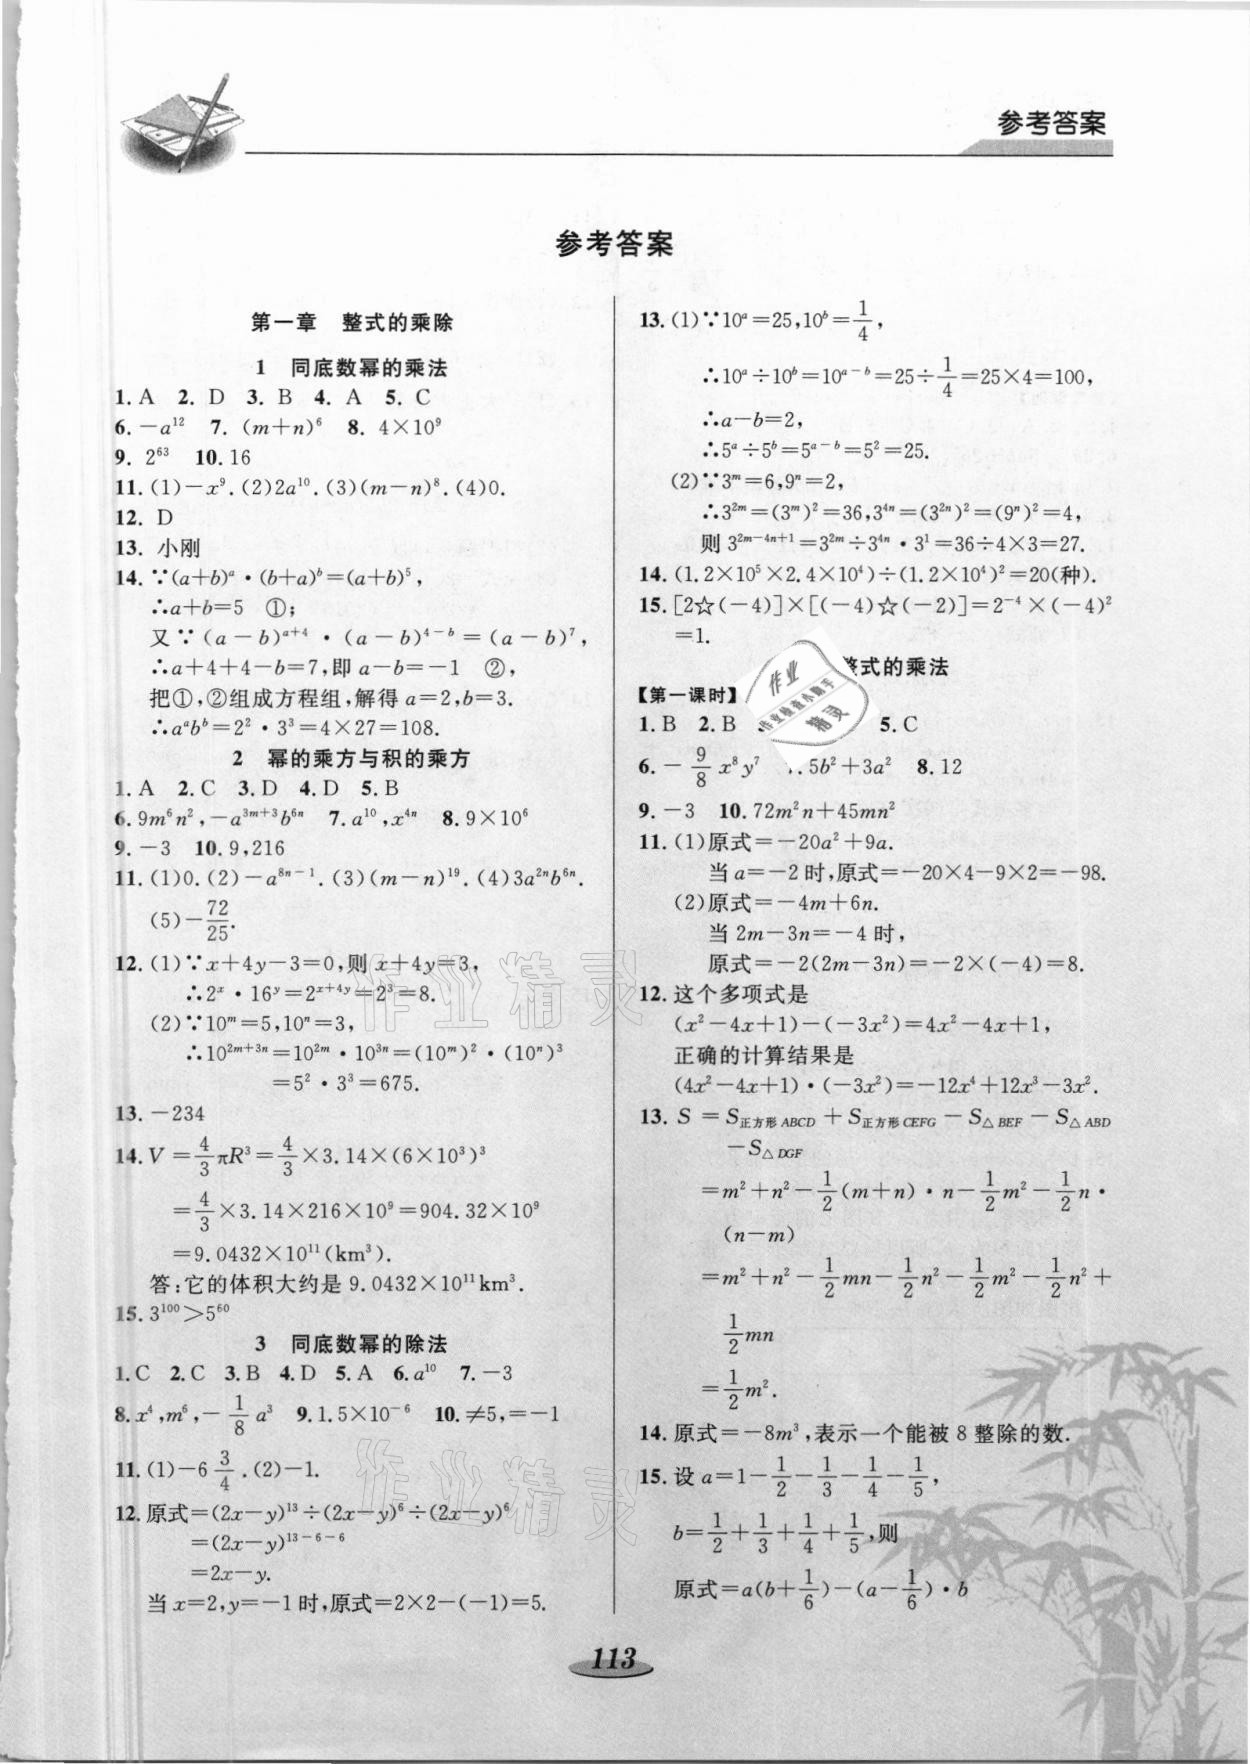 参考答案
参考答案
第一章 整式的乘除
1 同底数幂的乘法
1. A 2. D 3. B 4. A 5. C
6. −a¹² 7. (m+n)⁶ 8. 4×10⁹
9. 2⁶³ 10. 16
11. (1)−x⁹. (2)2a¹⁰. (3)(m−n)⁸. (4)0.
12. D
13. 小刚
14. ∵(a+b)ᵃ·(b+a)ᵇ=(a+b)⁵,
∴a+b=5 ①;
又∵(a−b)ᵃ⁺⁴·(a−b)⁴⁻ᵇ=(a−b)⁷,
∴a+4+4−b=7,即 a−b=−1 ②,
把①,②组成方程组,解得 a=2,b=3.
∴aᵃbᵇ=2²·3³=4×27=108.
2 幂的乘方与积的乘方
1. A 2. C 3. D 4. D 5. B
6. 9m⁶n²,−a³ᵐ⁺³b⁶ⁿ 7. a¹⁰,x⁴ⁿ 8. 9×10⁶
9. −3 10. 9,216
11. (1)0. (2)−a⁸ⁿ⁻¹. (3)(m−n)¹⁹. (4)3a²ⁿb⁶ⁿ.
(5)−72/25.
12. (1)∵x+4y−3=0,则 x+4y=3,
∴2ˣ·16ʸ=2ˣ⁺⁴ʸ=2³=8.
(2)∵10ᵐ=5,10ⁿ=3,
∴10²ᵐ⁺³ⁿ=10²ᵐ·10³ⁿ=(10ᵐ)²·(10ⁿ)³
=5²·3³=675.
13. −234
14. V=4/3πR³=4/3×3.14×(6×10³)³
=4/3×3.14×216×10⁹=904.32×10⁹
=9.0432×10¹¹(km³).
答:它的体积大约是 9.0432×10¹¹km³.
15. 3¹⁰⁰>5⁶⁰
3 同底数幂的除法
1. C 2. C 3. B 4. D 5. A 6. a¹⁰ 7. −3
8. x⁴,m⁶,−1/8 a³ 9. 1.5×10⁻⁶ 10. ≠5,=−1
11. (1)−6 3/4. (2)−1.
12. 原式=(2x−y)¹³÷(2x−y)⁶÷(2x−y)⁶
=(2x−y)¹³⁻⁶⁻⁶
=2x−y.
当 x=2,y=−1 时,原式=2×2−(−1)=5.
13. (1)∵10ᵃ=25,10ᵇ=1/4,
∴10ᵃ÷10ᵇ=10ᵃ⁻ᵇ=25÷1/4=25×4=100,
∴a−b=2,
∴5ᵃ÷5ᵇ=5ᵃ⁻ᵇ=5²=25.
(2)∵3ᵐ=6,9ⁿ=2,
∴3²ᵐ=(3ᵐ)²=36,3⁴ⁿ=(3²ⁿ)²=(9ⁿ)²=4,
则 3²ᵐ⁻⁴ⁿ⁺¹=3²ᵐ÷3⁴ⁿ·3¹=36÷4×3=27.
14. (1.2×10⁵×2.4×10⁴)÷(1.2×10⁴)²=20(种).
15. [2☆(−4)]×[(−4)☆(−2)]=2⁻⁴×(−4)²
=1.
整式的乘法
【第一课时】
1. B 2. B 5. C
6. −9/8 x⁸y⁷ 5b²+3a² 8. 12
9. −3 10. 72m²n+45mn²
11. (1)原式=−20a²+9a.
当 a=−2 时,原式=−20×4−9×2=−98.
(2)原式=−4m+6n.
当 2m−3n=−4 时,
原式=−2(2m−3n)=−2×(−4)=8.
12. 这个多项式是
(x²−4x+1)−(−3x²)=4x²−4x+1,
正确的计算结果是
(4x²−4x+1)·(−3x²)=−12x⁴+12x³−3x².
13. S=S正方形ABCD+S正方形CEFG−S△BEF−S△ABD
−S△DGF
=m²+n²−1/2(m+n)·n−1/2m²−1/2n·
(n−m)
=m²+n²−1/2mn−1/2n²−1/2m²−1/2n²+
1/2mn
=1/2m².
14. 原式=−8m³,表示一个能被 8 整除的数.
15. 设 a=1−1/2−1/3−1/4−1/5,
b=1/2+1/3+1/4+1/5,则
原式=a(b+1/6)−(a−1/6)·b
作业
作业检查小助手
精灵
作业精灵
作业精灵
113